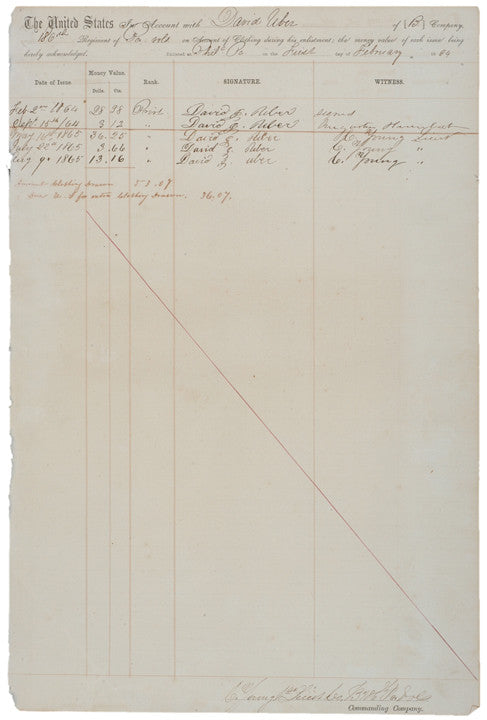 The United States In Account with David Uber of (B) Company,
186th Regiment of Pa vols on Account of Clothing during his enlistment; the money value of each issue being
hereby acknowledged. Enlisted at Phil Pa on the First day of February 64
Date of Issue. Money Value. Rank. SIGNATURE. WITNESS.
Dolls. Cts.
Feb 2nd 1864 28 98 Privt David Uber
Sept 15th/64 3 12 " David Uber
1865 36.25 " David Uber C Young Lieut
22d 1865 3.66 " David Uber C. Young "
9 1865 13.16 " David Uber C. Young "
Amount Clothing Drawn 53.07
Due U. S for extra Clothing Drawn. 36.07.
C Young 1st Lieut Co B
Commanding Company.